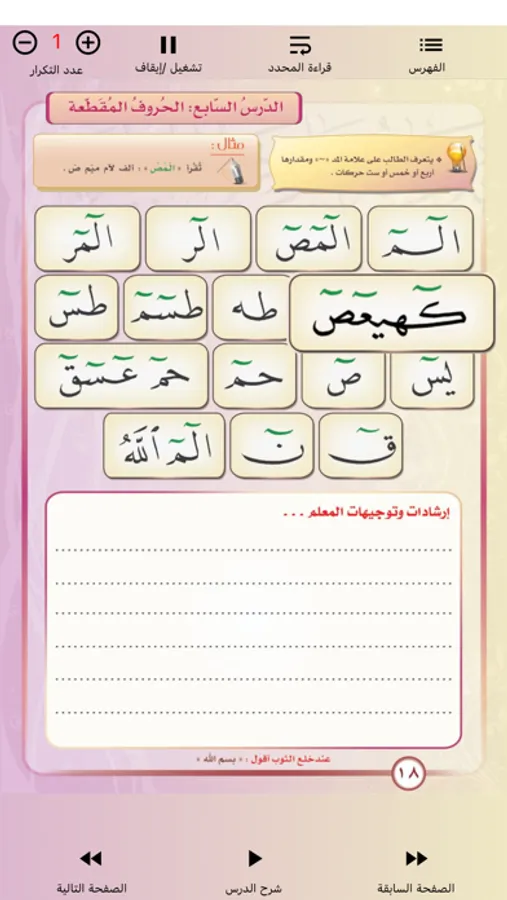 الفهرس
قراءة المحدد
تشغيل /إيقاف
1
عدد التكرار
الدّرسُ السّابع: الحُروفُ المُقَطّعة
• يتعرف الطالب على علامة المد «~» ومقدارها
أربع أو خمس أو ست حركات .
مثال :
تُقرَأ «الٓمٓصٓ» : الف لآم ميٓم صٓ .
الٓـمٓ الٓمٓصٓ الٓر الٓمٓر
كٓهيعٓصٓ طه طسٓمٓ طسٓ
يسٓ صٓ حمٓ حمٓ عٓسٓقٓ
قٓ نٓ الٓمٓ ٱللَّهُ
إرشادات وتوجيهات المعلم ...
عند خلع الثوب أقول : « بسم الله »
١٨
الصفحة السابقة
شرح الدرس
الصفحة التالية